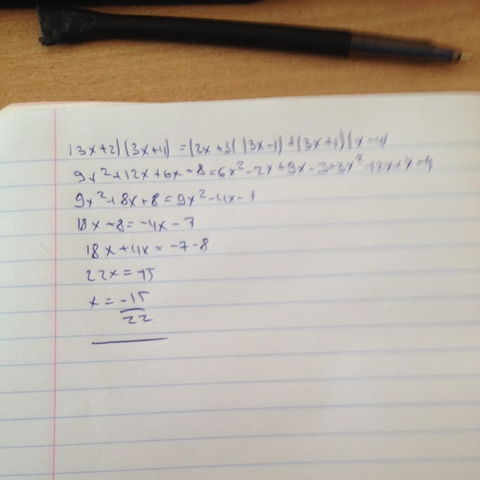 (3x+2)(3x+4) = (2x+3)(3x-1)+(3x+1)(x-4)
9x²+12x+6x+8=6x²-2x+9x-3+3x²-12x+x-4
9x²+18x+8=9x²-4x-7
18x+8=-4x-7
18x+4x=-7-8
22x=-15
x=-15
22